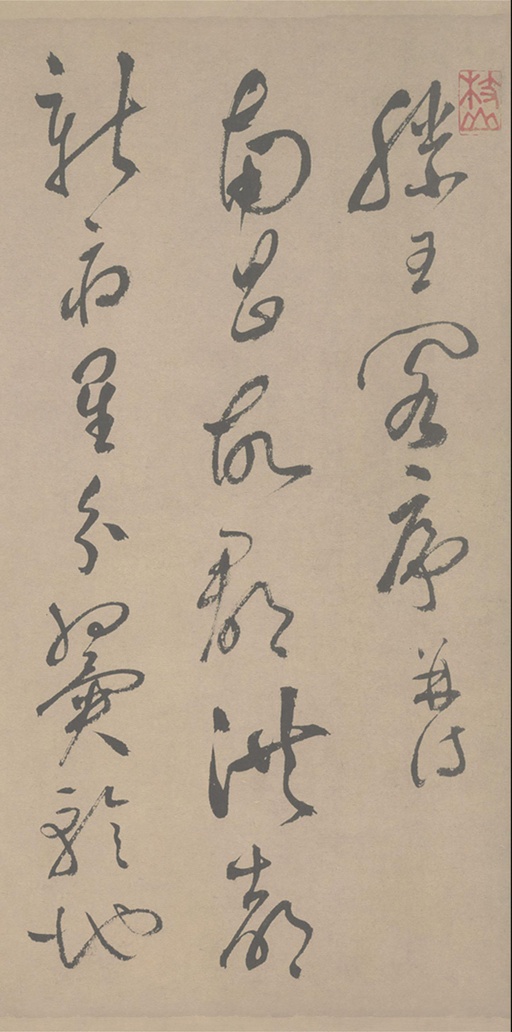 枝山
滕王閣序并詩
南昌故郡洪都
新府星分翼軫地